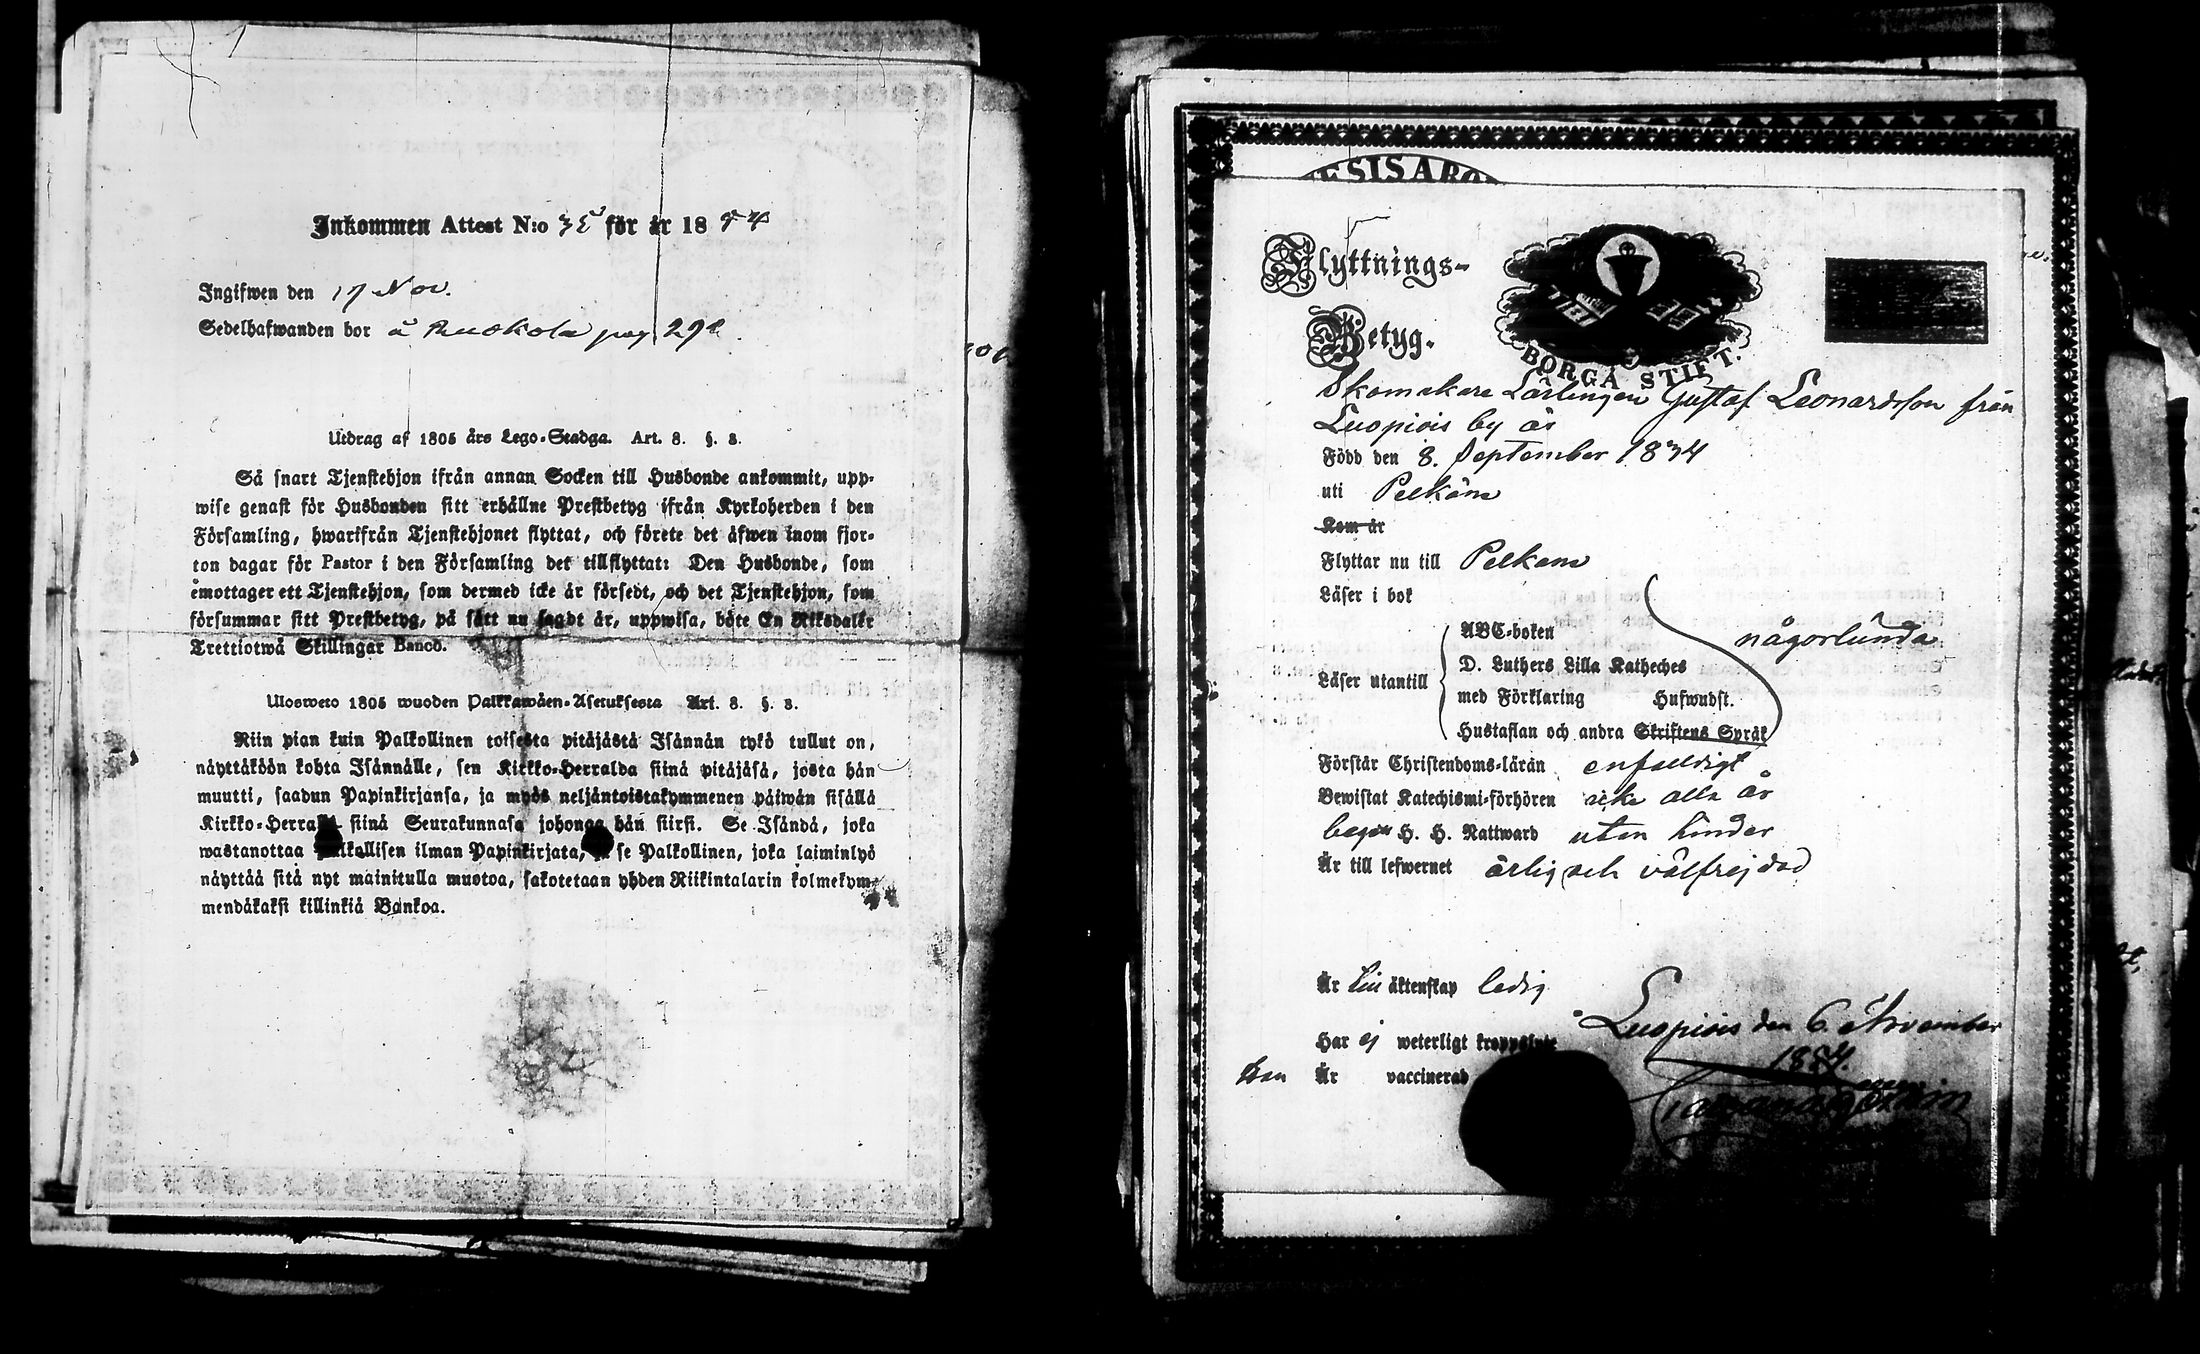 Inkommen Attest N:o 35 för år 1854
Ingifwen den 17 Nov.
Sedelhafwanden bor å Ruokola pag 292
Utdrag af 1805 års Lego-Stadga. Art. 8. §. 3.
Så snart Tjenstehjon ifrån annan Socken till Husbonde ankommit, upp-
wise genast för Husbonden sitt erhållne Prestbetyg ifrån Kyrkoherden i den
Församling, hwarifrån Tjenstehjonet flyttat, och förete det äfwen inom fjor-
ton dagar för Pastor i den Församling det tillflyttat: Den Husbonde, som
emottager ett Tjenstehjon, som dermed icke är försedt, och det Tjenstehjon, som
försummar sitt Prestbetyg, på sätt nu sagdt är, uppwisa, böte En Riksdaler
Trettiotwå Skillingar Banco.
Ulosweto 1805 wuoden Palkkawäen-Asetuksesta Art. 8. §. 3.
Niin pian kuin Palkollinen toisesta pitäjästä Isännän tykö tullut on,
näyttäköön kohta Isännälle, sen Kirkko-Herralda siinä pitäjäsä, josta hän
muutti, saadun Papinkirjansa, ja myös neljäntoistakymmenen päiwän sisällä
Kirkko-Herralle siinä Seurakunnasa johonga hän siirsi. Se Isändä, joka
wastanottaa Palkollisen ilman Papinkirjata, ja se Palkollinen, joka laiminlyö
näyttää sitä nyt mainitulla muotoa, sakotetaan yhden Riikintalarin kolmekym-
mendäkaksi killinkiä Bankoa.
ESIS ABO
Flyttnings-
Betyg.
BORGÅ STIFT.
Skomakare Lärlingen Gustaf Leonardsson från
Luopiois by är
Född den 8. September 1834
uti Pelkäne
Kom år
Flyttar nu till Pelkane
Läser i bok
Läser utantill
ABC-boken
D. Luthers Lilla Katheches
med Förklaring Hufwudst.
Hustaflan och andra Skriftens Språk
någorlunda
Förstår Christendoms-läran enfaldigt
Bewistat Katechismi-förhören icke alla år
begår H. H. Nattward uten hinder
Är till lefwernet ärlig och välfrejdad
Är till äktenskap ledig
Luopiois den 6. November
1854.
Har ej weterligt kroppslyte
Är vaccinerad